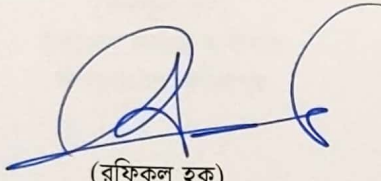 (রফিকুল হক)